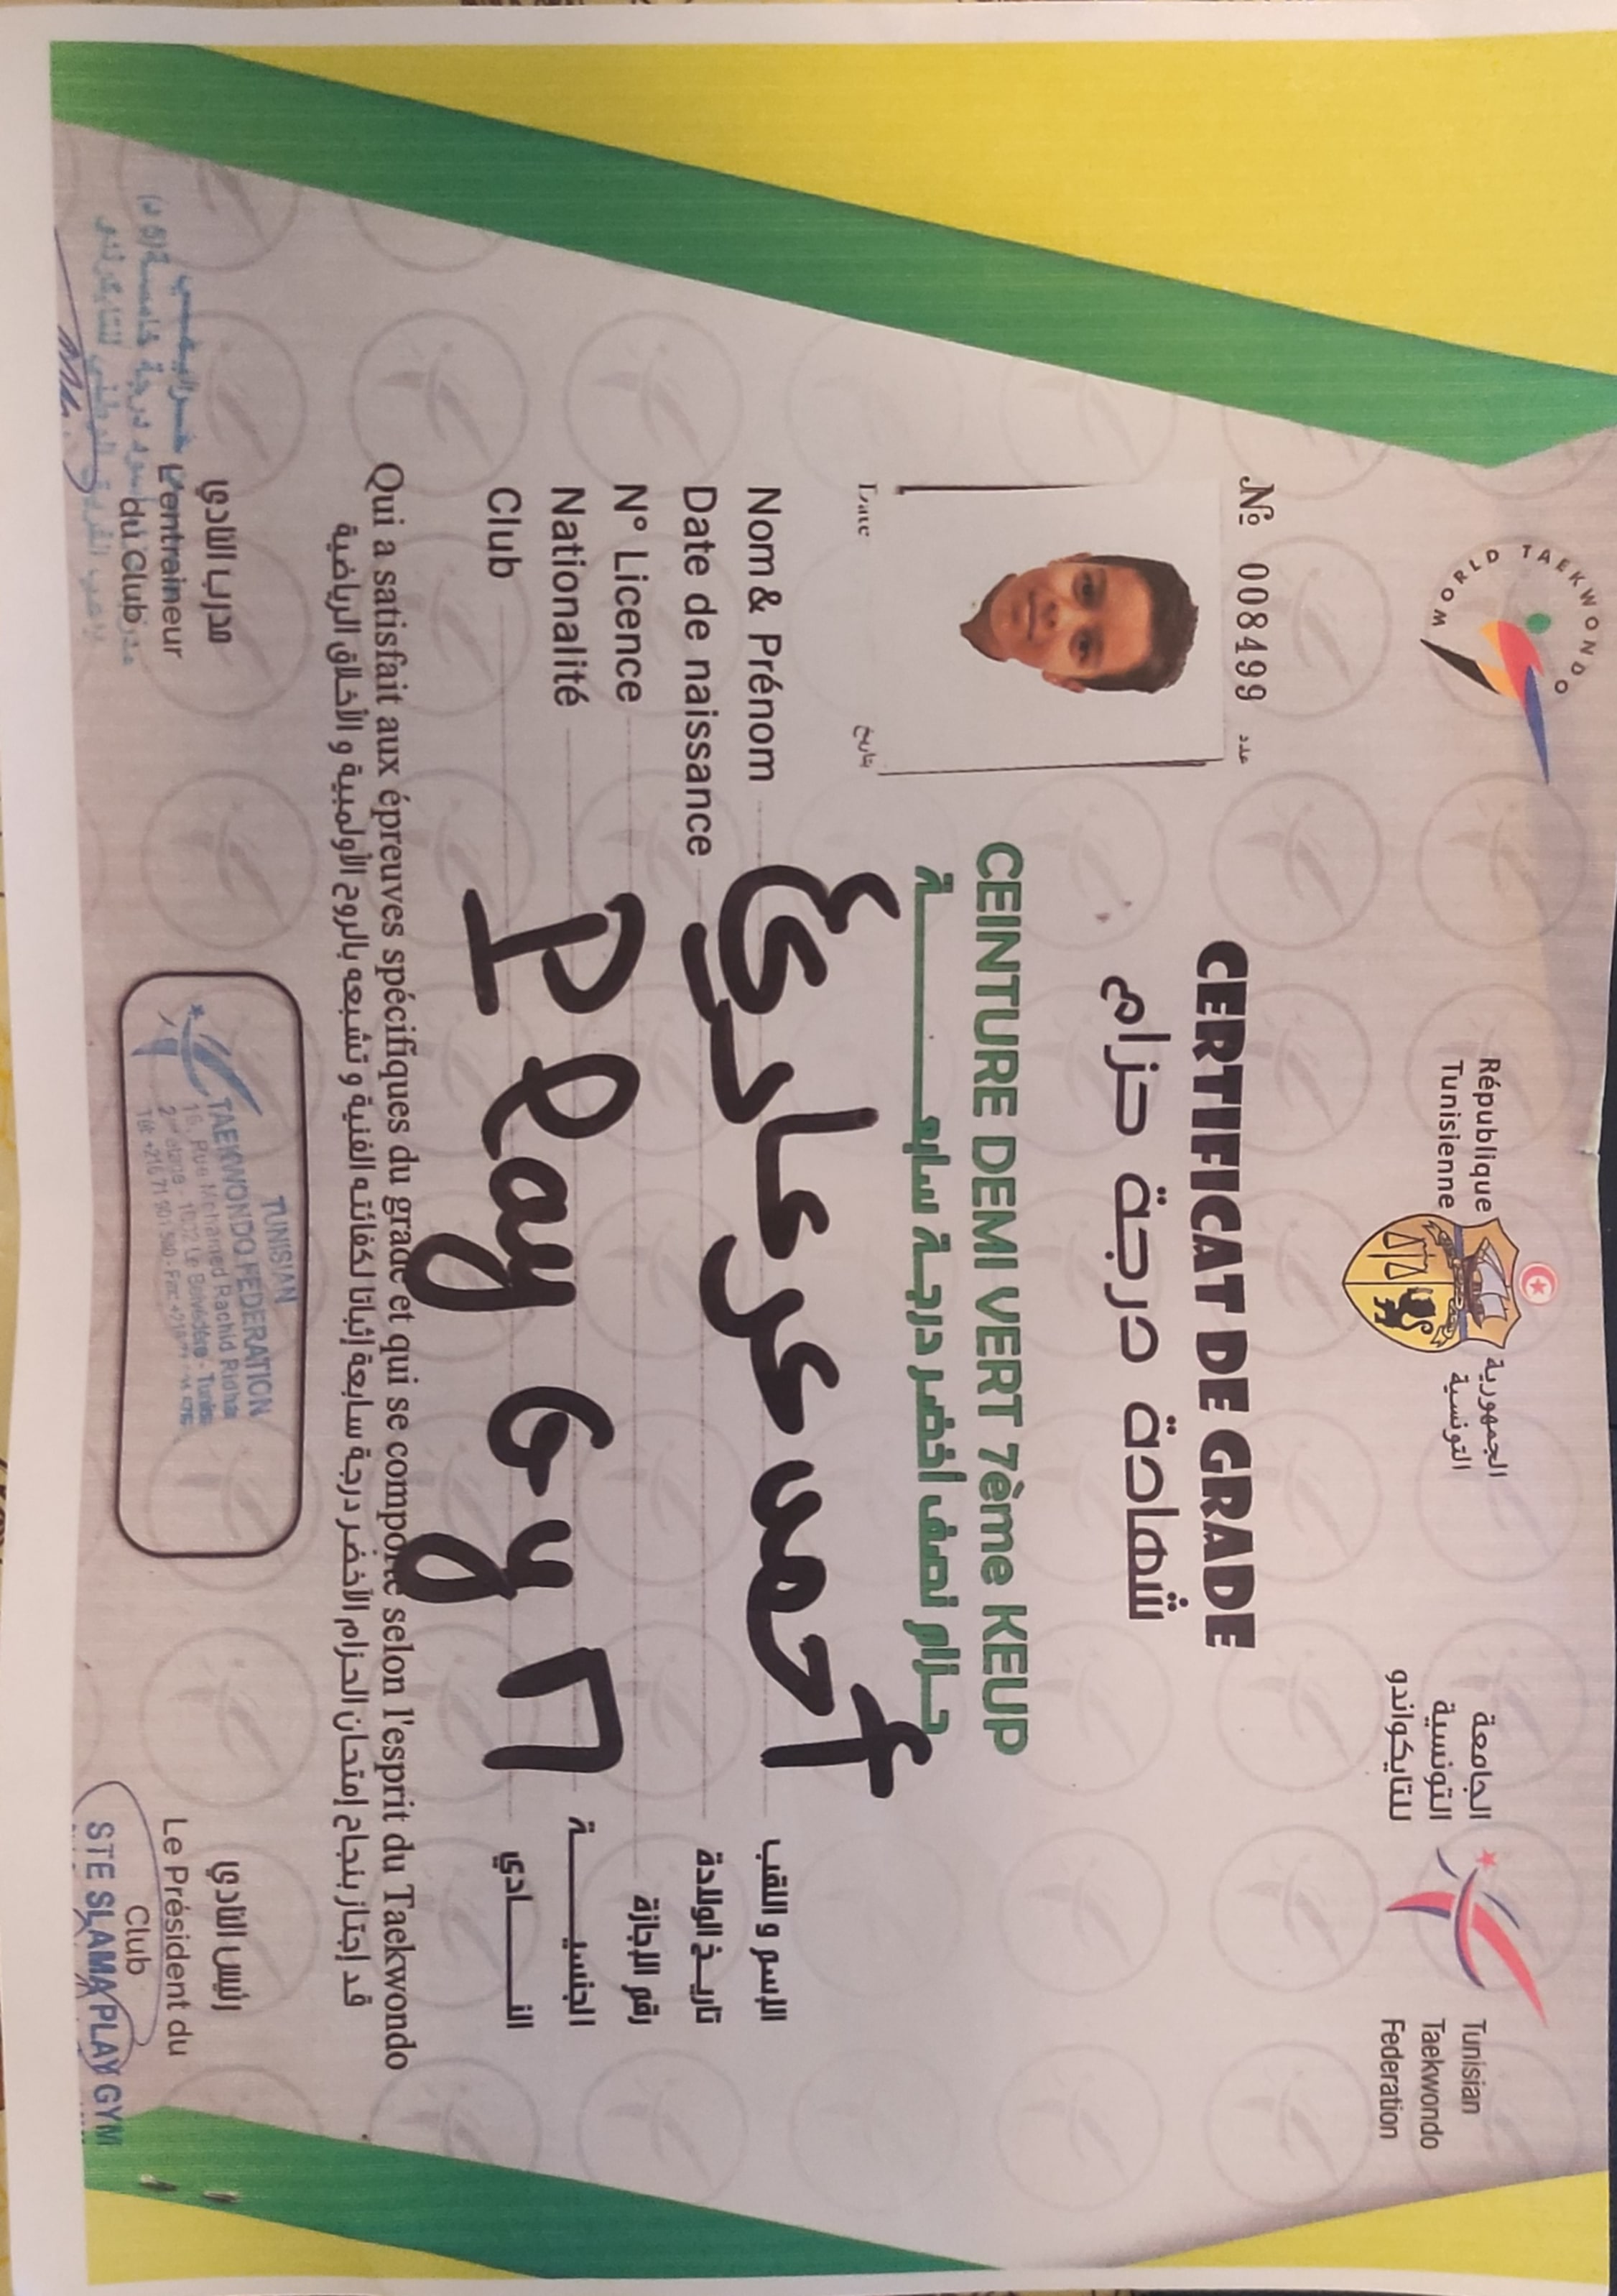 WORLD TAEKWONDO
République
Tunisienne
الجمهورية
التونسية
الجامعة
التونسية
للتايكواندو
Tunisian
Taekwondo
Federation
№ 008499 عدد
CERTIFICAT DE GRADE
شهادة درجة حزام
CEINTURE DEMI VERT 7ème KEUP
حزام نصف أخضر درجة سابعة
Date بتاريخ
Nom & Prénom أحمد عرعاري الإسم و اللقب
Date de naissance تاريخ الولادة
N° Licence رقم الإجازة
Nationalité الجنسية
Club Play Gym النادي
Qui a satisfait aux épreuves spécifiques du grade et qui se comporte selon l'esprit du Taekwondo
قد إجتاز بنجاح إمتحان الحزام الأخضر درجة سابعة إثباتا لكفائته الفنية و تشبعه بالروح الأولمبية و الأخلاق الرياضية
مدرب النادي
L'entraineur
du Club
TUNISIAN
TAEKWONDO FEDERATION
16, Rue Mohamed Rachid Ridha
2ème étage - 1002 Le Belvédère - Tunis
رئيس النادي
Le Président du
Club
STE SLAMA PLAY GYM